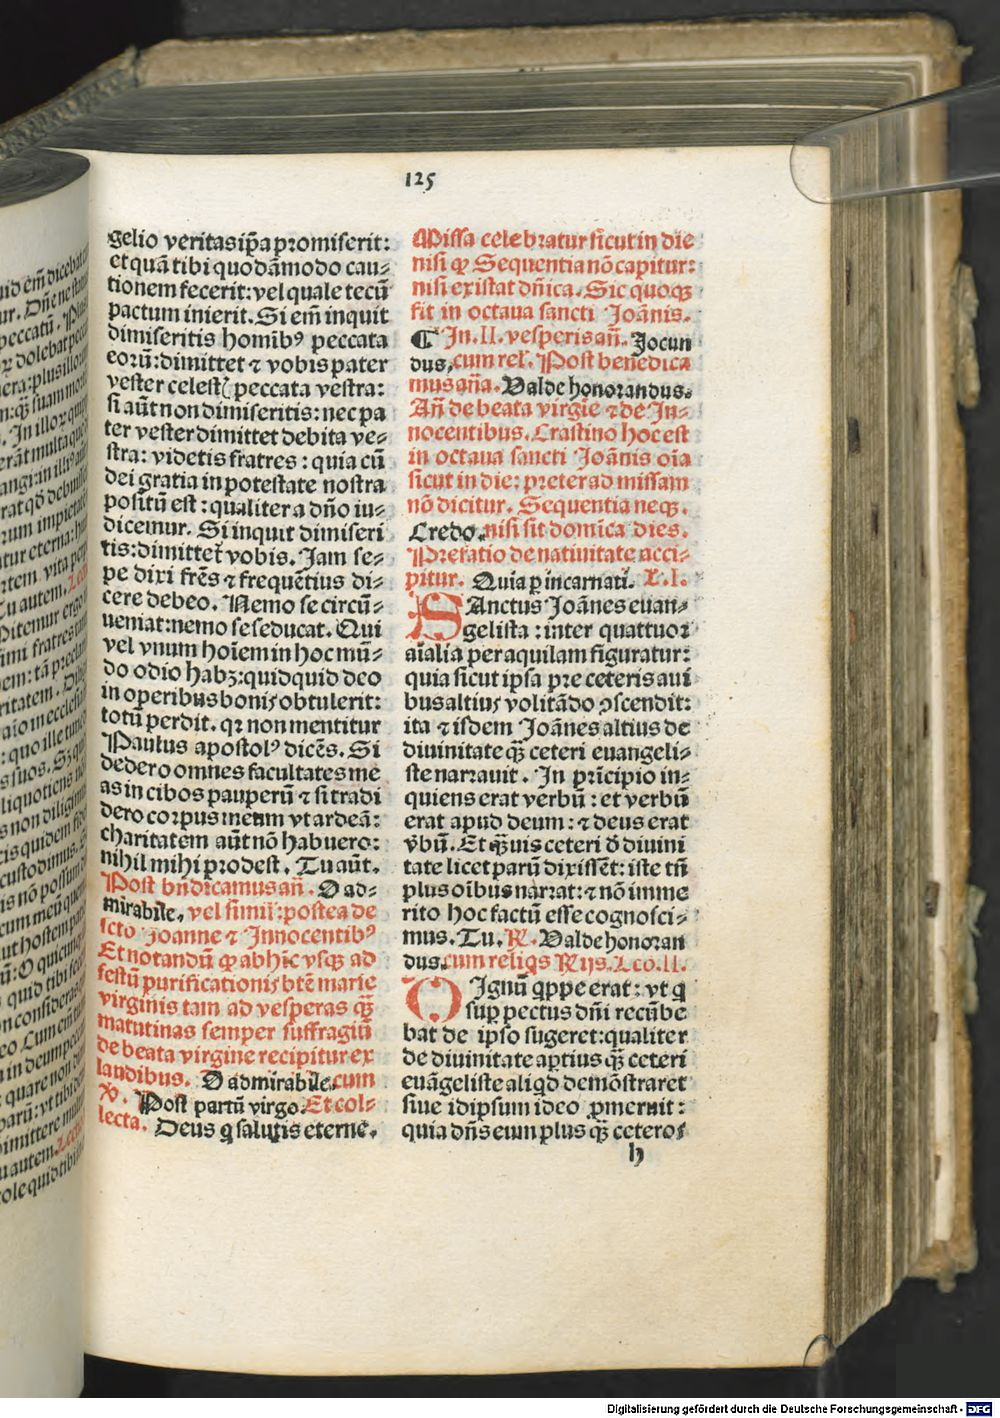 125
gelio veritas ip̄a promiserit:
et quā tibi quodāmodo cau⸗
tionem fecerit: vel quale tecū
pactum inierit. Si em̄ inquit
dimiseritis homibꝰ peccata
eorū: dimittet ⁊ vobis pater
vester celest peccata vestra:
si aūt non dimiseritis: nec pa
ter vester dimittet debita ve⸗
stra: videtis fratres: quia cū
dei gratia in potestate nostra
positū est: qualiter a dn̄o iu⸗
dicemur. Si inquit dimiseri
tis: dimittet̄ vobis. Jam se⸗
pe dixi frēs ⁊ frequētius di⸗
cere debeo. Nemo se circū⸗
ueniat: nemo se seducat. Qui
vel vnum hoīem in hoc mū⸗
do odio habꝫ: quidquid deo
in operibus bonis obtulerit:
totū perdit. qꝛ non mentitur
Paulus apostolꝰ dicēs. Si
dedero omnes facultates me
as in cibos pauperū ⁊ si tradi
dero corpus meum vt ardeā:
charitatem aūt nō habuero:
nihil mihi prodest. Tu aūt.
Post bn̄dicamus an̄. O ad⸗
mirabile. vel simil': postea de
scto Joanne ⁊ Innocentibꝰ
Et notandū ꝙ ab hic vsqꝫ ad
festū purificationis btē marie
virginis tam ad vesperas qꝫ̄
matutinas semper suffragiū
de beata virgine recipitur ex
laudibus. O admirabile. cum
V̇. Post partū virgo. Et col⸗
lecta. Deus q̄ salutis eterne.
Missa celebratur sicut in die
nisi ꝙ Sequentia nō capitur:
nisi existat dn̄ica. Sic quoqꝫ
fit in octaua sancti Joānis.
¶ In .II. vesperis an̄. Jocun
dus. cum rel'. Post benedica
mus an̄a. Valde honorandus.
An̄ de beata virgīe ⁊ de In⸗
nocentibus. Crastino hoc est
in octaua sancti Joānis oīa
sicut in die: preter ad missam
nō dicitur. Sequentia neqꝫ.
Credo. nisi sit domīca dies.
Prefatio de natiuitate acci⸗
pitur. Quia p̱ incarnati. L. I.
SAnctus Joānes euan⸗
gelista: inter quattuor
aīalia per aquilam figuratur:
quia sicut ipsa pre ceteris aui
bus altius volitādo ꝯscendit:
ita ⁊ isdem Joānes altius de
diuinitate qꝫ̄ ceteri euangeli⸗
ste narrauit. In prīcipio in⸗
quiens erat verbū: et verbū
erat apud deum: ⁊ deus erat
v̄bū. Et qꝫ̄uis ceteri ð diuini
tate licet parū dixissēt: iste tn̄
plus oībus narrat: ⁊ nō imme
rito hoc factū esse cognosci⸗
mus. Tu. ℟. Valde honoran
dus. cum reliq̄s ℟ijs. Lco. II.
DIgnū q̄ppe erat: vt q̄
sup̱ pectus dn̄i recūbe
bat de ipso sugeret: qualiter
de diuinitate aptius qꝫ̄ ceteri
euāgeliste aliqd demōstraret
siue idipsum ideo ꝓmeruit:
quia dn̄s eum plus qꝫ̄ ceteros
h
Digitalisierung gefördert durch die Deutsche Forschungsgemeinschaft - DFG